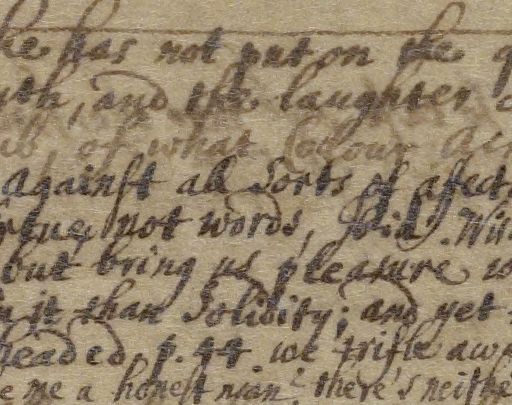 he has not put on the
and the laughter
of what Colour
against all Sorts of afect
not words,
but bring us pleasure
in it than Solidity; and yet
headed. p. 44. we trifle aw
me a honest man? there's neithe